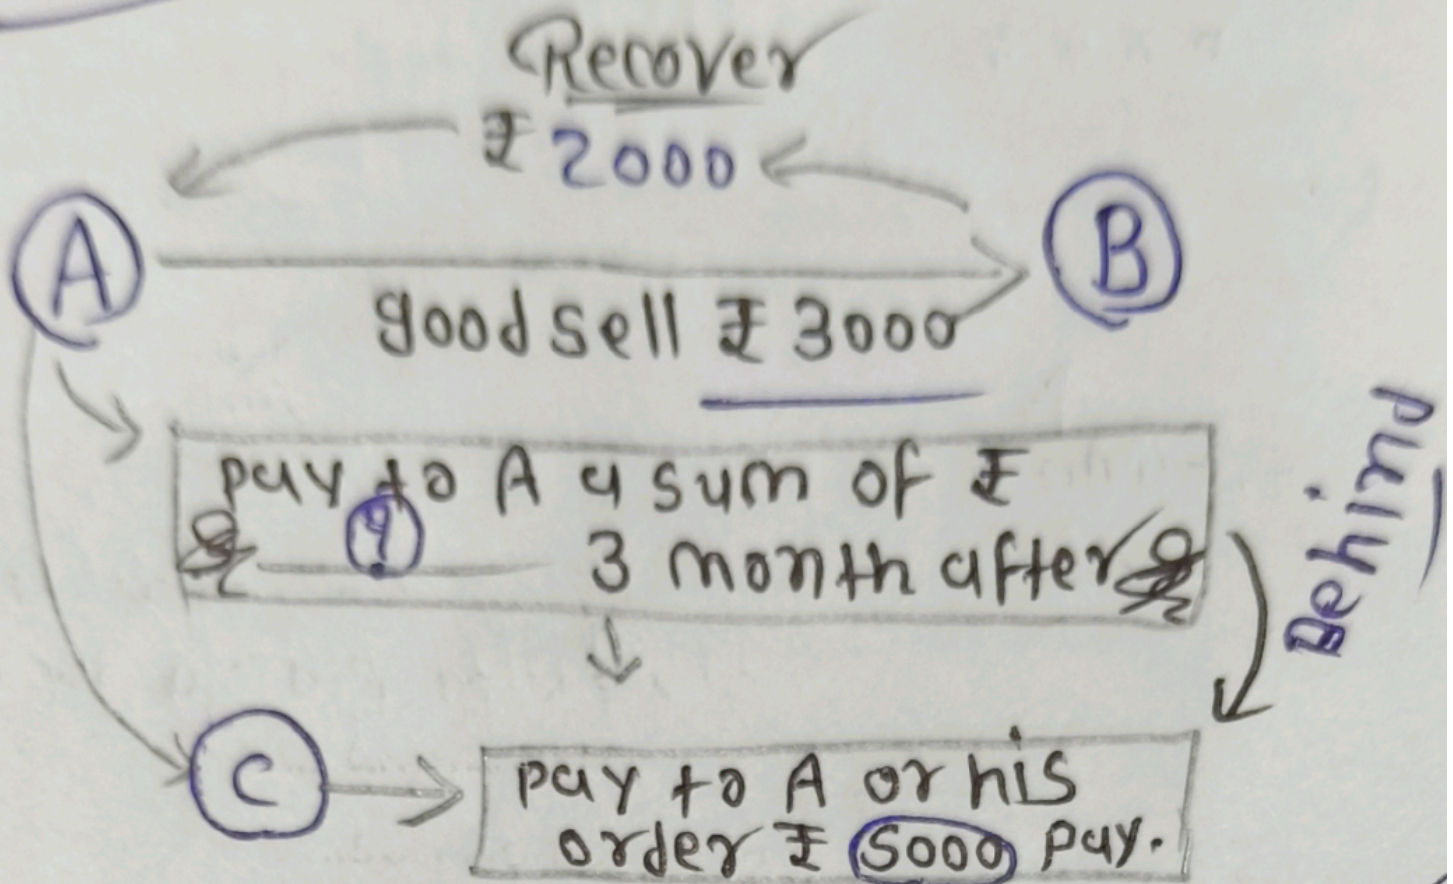 Recover
₹ 2000
A
B
good sell ₹ 3000
pay to A a sum of ₹
? 3 month after
Behind
C
pay to A or his
order ₹ 5000 pay.